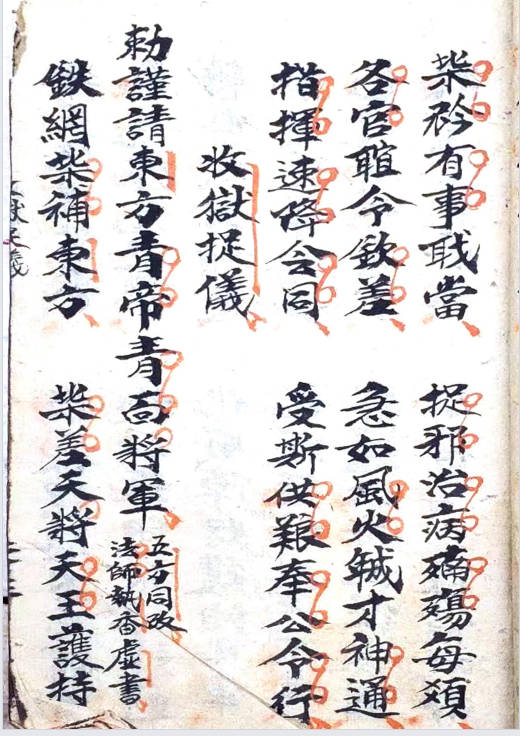 柴矜有事戢當　捉邪治病痛殤每煩
各官聼令欽差　急如風火神通
指揮速降会同　受斯供艱奉公令行
收獄捉儀
勅謹請東方青帝青面將軍
五方同改
法師執香虛書
鉄網柴補東方　柴差天將天王護持